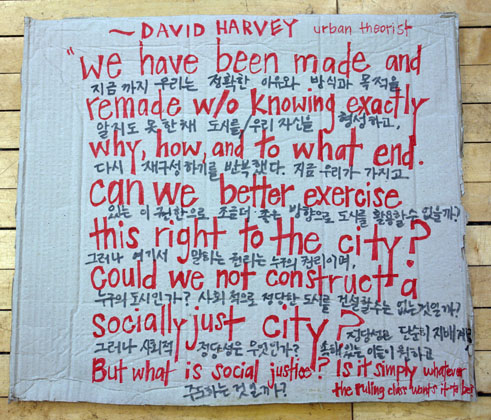 ~ DAVID HARVEY urban theorist
"we have been made and
지금까지 우리는 정확한 이유와 방식과 목적을
remade w/o knowing exactly
알지도 못한채 도시를/우리 자신을 형성하고,
why, how, and to what end.
다시 재구성하기를 반복했다. 지금 우리가 가지고
can we better exercise
있는 이 권한으로 조금더 좋은 방향으로 도시를 활용할수 없을까?
this right to the city?
그러나 여기서 말하는 권리는 누구의 권리이며,
Could we not construct a
누구의 도시인가? 사회적으로 정당한 도시를 건설할수는 없는것일까?
socially just city?
그러나 사회적 정당성은 무엇인가? 정당성은 단순히 지배계급
속해 있는 이들이 원하고
But what is social justice? Is it simply whatever
the ruling class wants it to be?
주도하는 것일까?